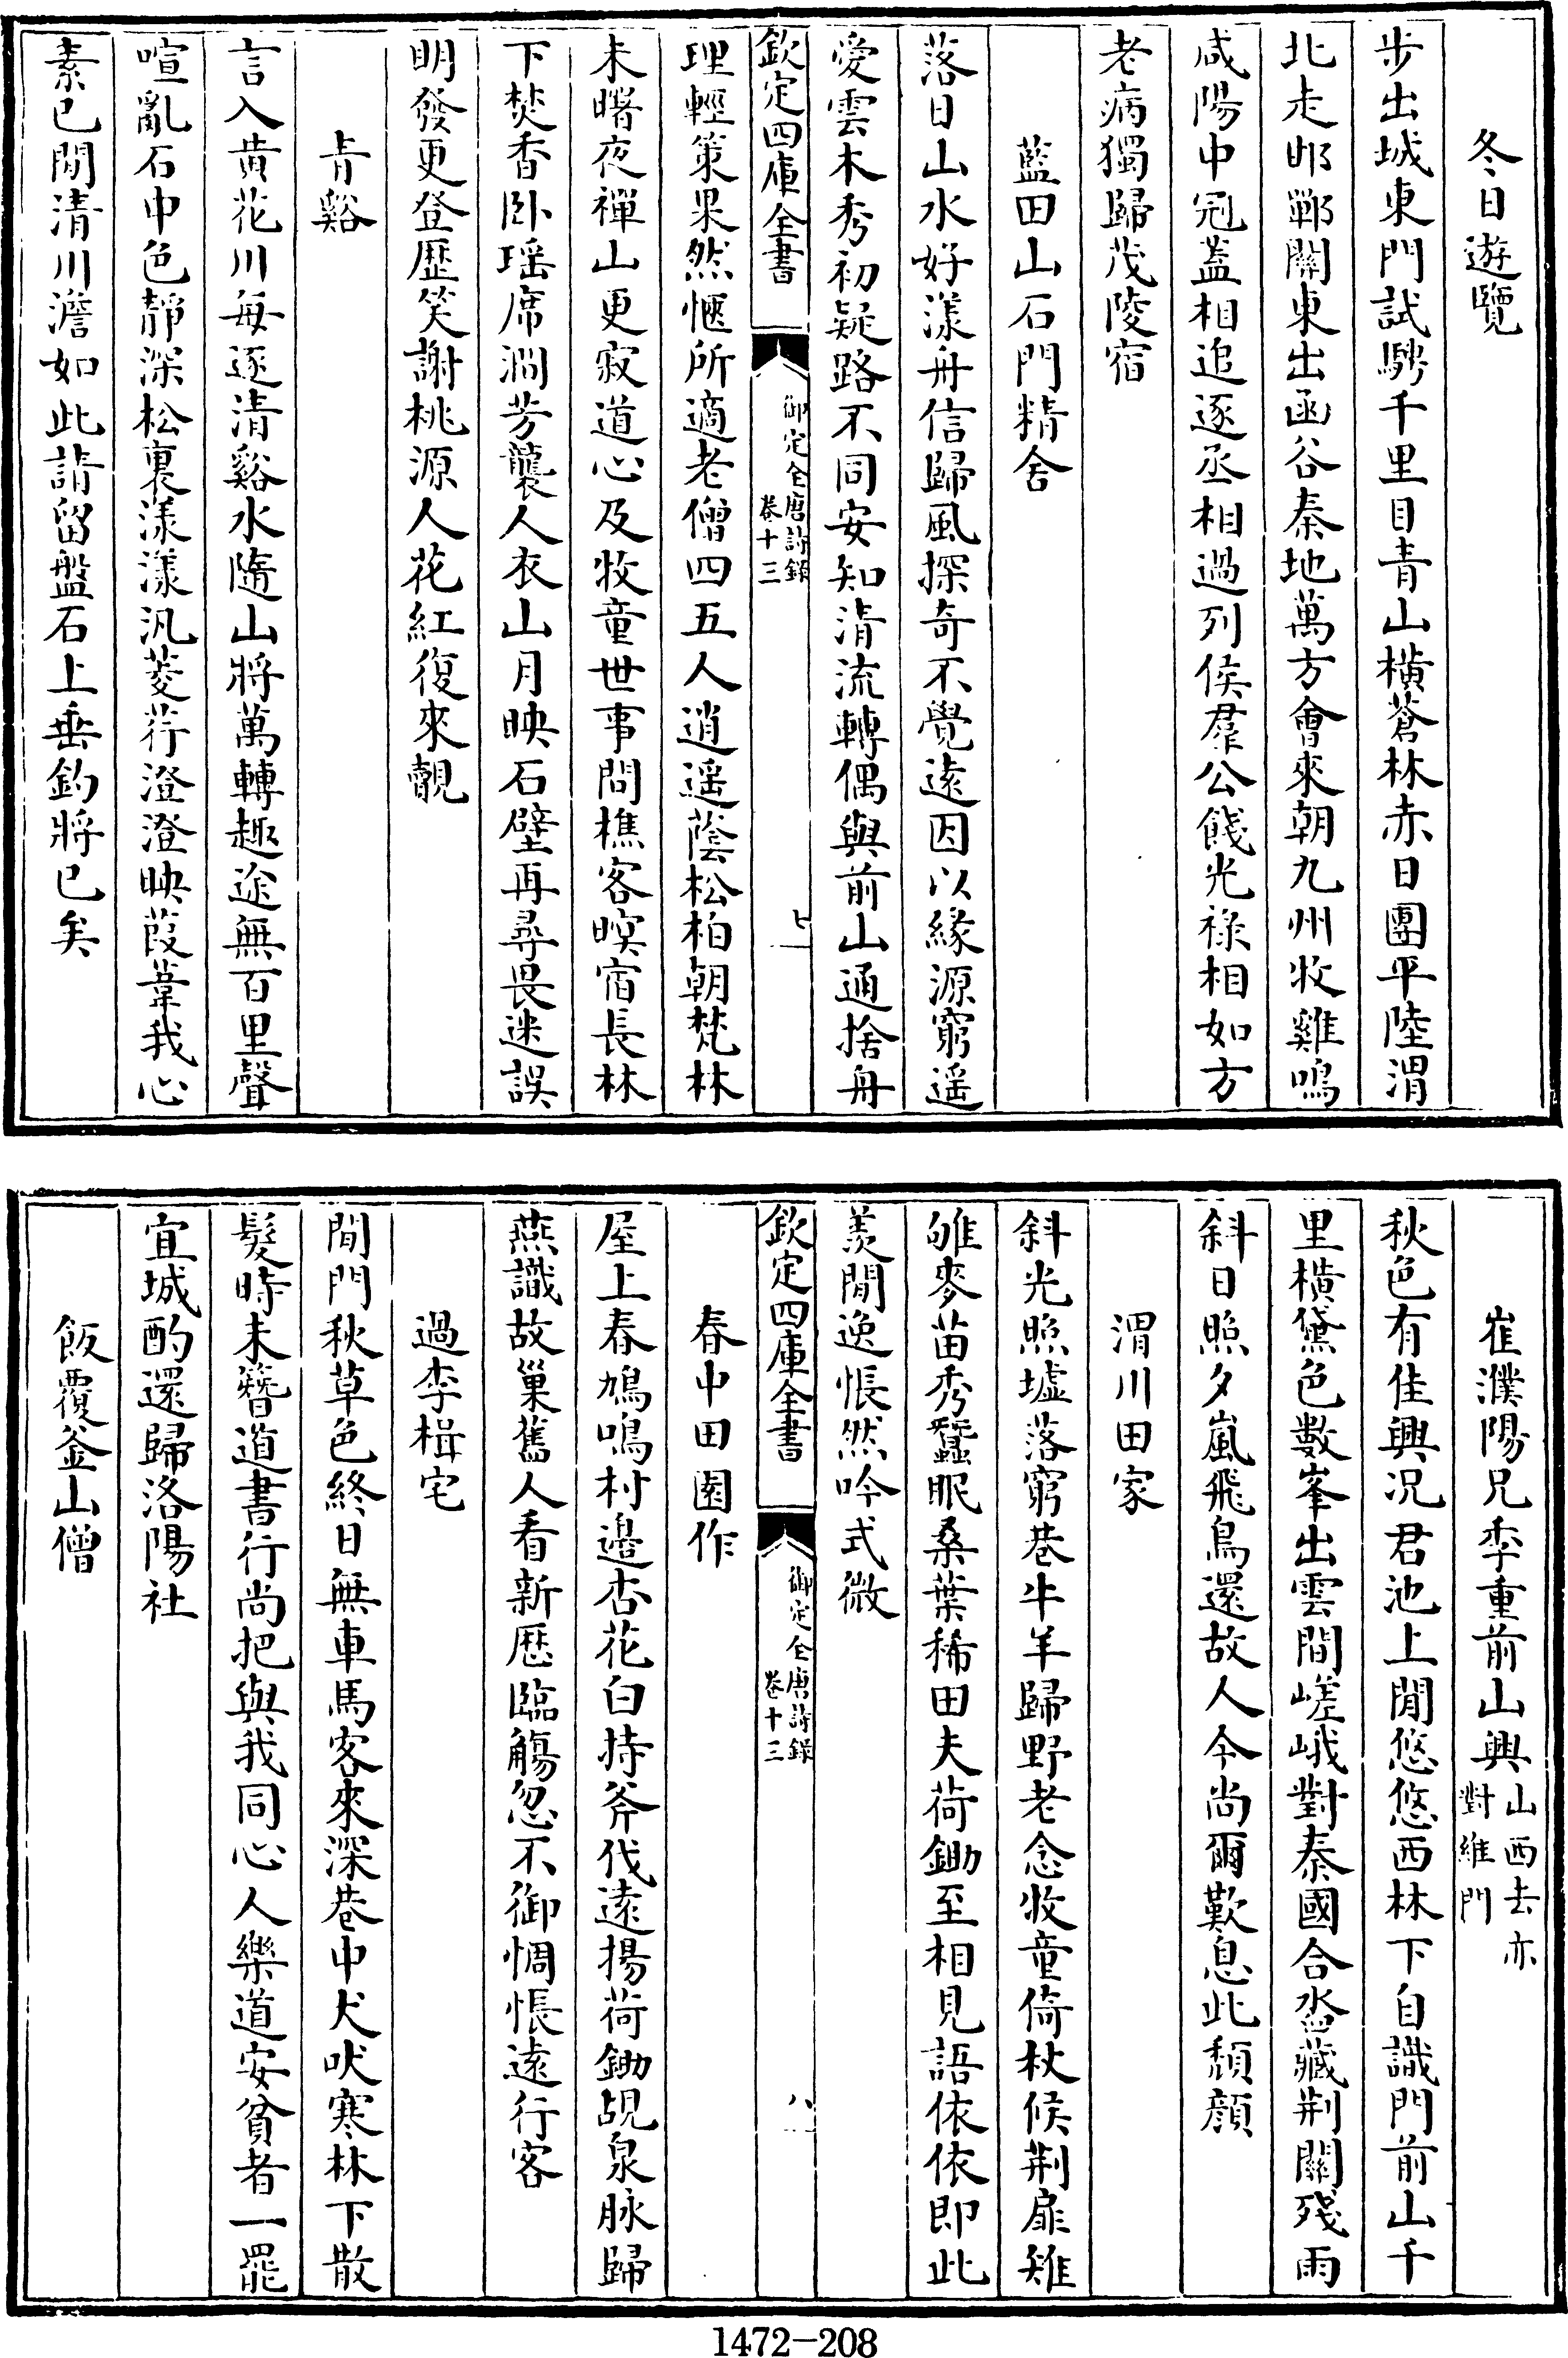 冬日遊覽
步出城東門試騁千里目青山橫蒼林赤日團平陸渭
北走邯鄲關東出函谷秦地萬方會來朝九州牧雞鳴
咸陽中冠蓋相追逐丞相過列侯羣公餞光祿相如方
老病獨歸茂陵宿
藍田山石門精舍
落日山水好漾舟信歸風探奇不覺逺因以緣源窮遥
愛雲木秀初疑路不同安知清流轉偶與前山通捨舟
欽定四庫全書
御定全唐詩錄
卷十三
七
理輕策果然愜所適老僧四五人逍遥蔭松柏朝梵林
未曙夜禪山更寂道心及牧童世事問樵客暝宿長林
下焚香卧瑶席澗芳襲人衣山月映石壁再尋畏迷誤
明發更登歴笑謝桃源人花紅復來覿
青谿
言入黄花川每逐清谿水隨山將萬轉趣途無百里聲
喧亂石中色靜深松裏漾漾汎菱荇澄澄映葭葦我心
素已閒清川澹如此請留盤石上垂釣將已矣
崔濮陽兄季重前山興山西去亦
對維門
秋色有佳興况君池上閒悠悠西林下自識門前山千
里橫黛色數峯出雲間嵯峨對秦國合沓藏荆關殘雨
斜日照夕嵐飛鳥還故人今尚爾歎息此頽顔
渭川田家
斜光照墟落窮巷牛羊歸野老念牧童倚杖候荆扉雉
雊麥苗秀蠶眠桑葉稀田夫荷鋤至相見語依依即此
羨閒逸悵然吟式微
欽定四庫全書
御定全唐詩錄
卷十三
八
春中田園作
屋上春鳩鳴村邉杏花白持斧伐逺揚荷鋤覘泉脉歸
燕識故巢舊人看新歴臨觴忽不御惆悵逺行客
過李楫宅
閒門秋草色終日無車馬客來深巷中犬吠寒林下散
髮時未簪道書行尚把與我同心人樂道安貧者一罷
宜城酌還歸洛陽社
飯覆釜山僧
1472-208